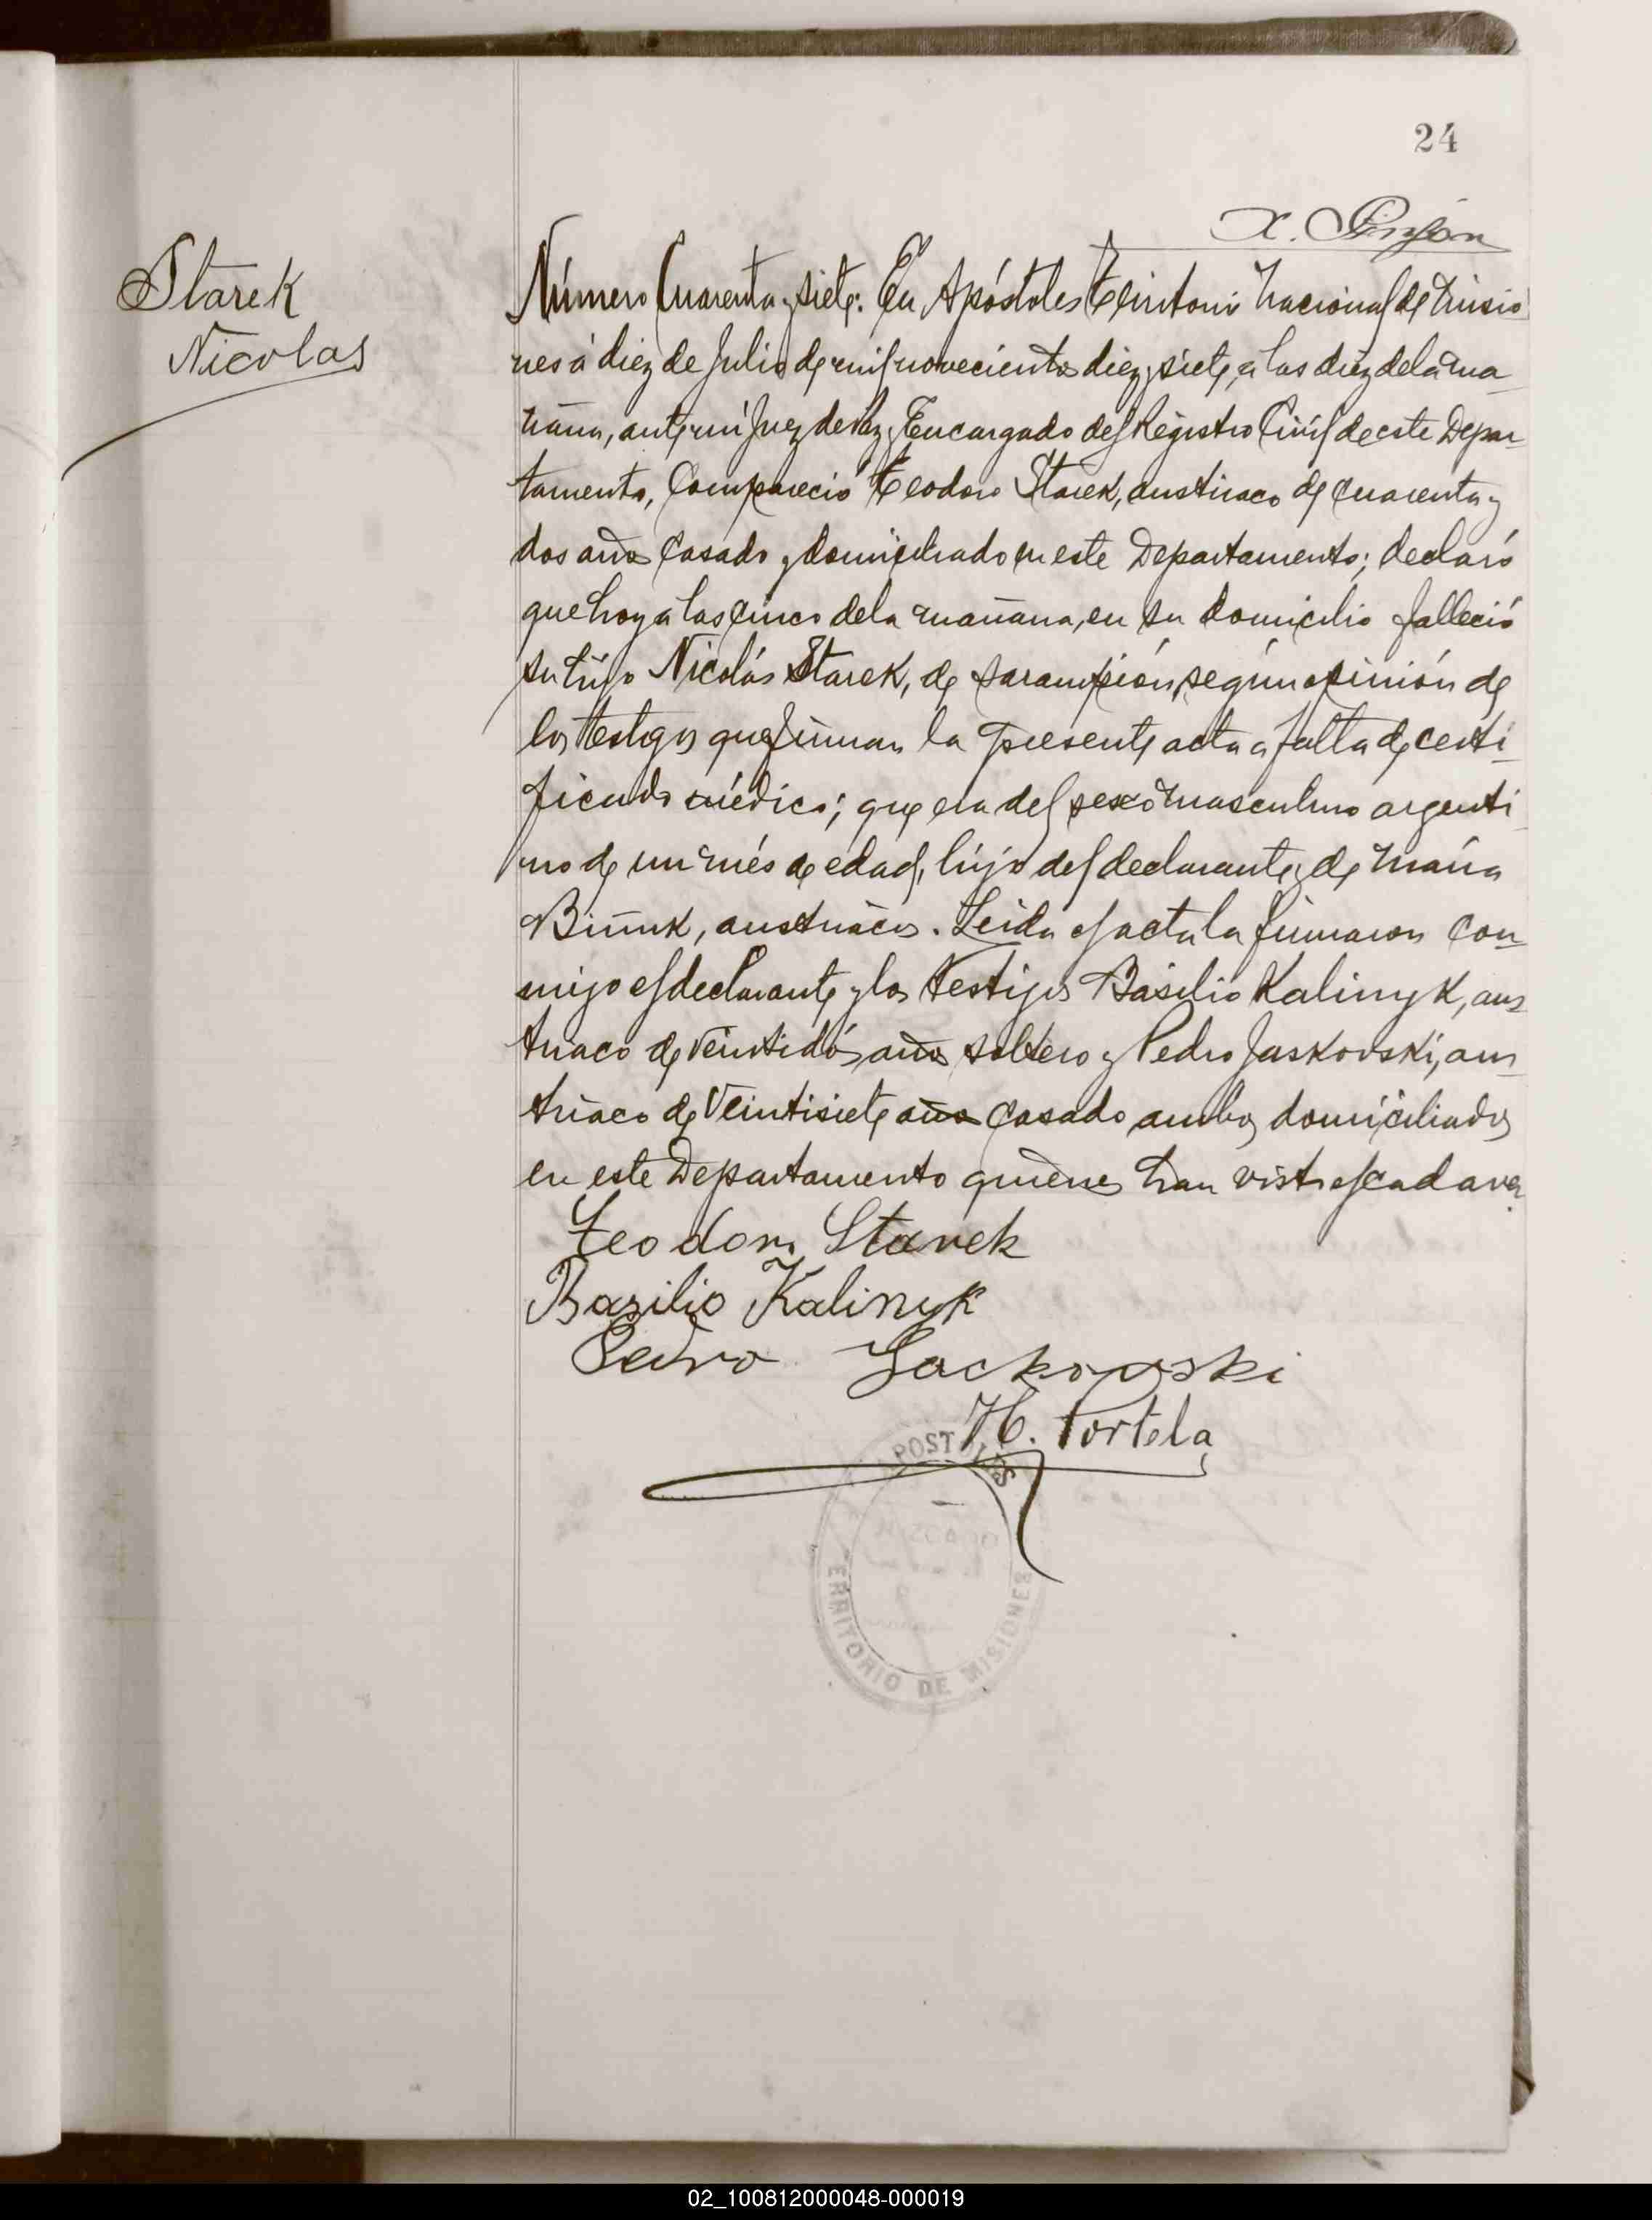 24
Starek
Nicolas
Número Cuarenta y siete: En Apóstoles Territorio Nacional de Misio
nes á diez de Julio de mil novecientos diez y siete, a las diez de la ma-
ñana, ante mí Juez de Paz y Encargado del Registro Civil de este Depar-
tamento, Compareció Teodoro Starek, austriaco de cuarenta y
dos años Casado y domiciliado en este Departamento; declaró
que hoy a las cinco de la mañana, en su domicilio falleció
su hijo Nicolás Starek, de sarampión, según opinión de
los testigos que firman la presente acta a falta de certi-
ficado médico; que era del sexo masculino argenti
no de un més de edad, hijo del declarante y de María
austriácos. Leida el acta la firmaron con-
migo el declarante y los testigos Básilio Kalinyk, aus
triaco de veintidós años soltero y Pedro Jaskovski, aus
triaco de Veintisiete años Casado ambos domiciliados
en este Departamento quiénes han visto el cadaver.
Teodoro Starek
Bazilio Kalinyk
Pedro Jackowski
H. Portela
POSTOLES
TERRITORIO DE MISIONES
02_100812000048-000019